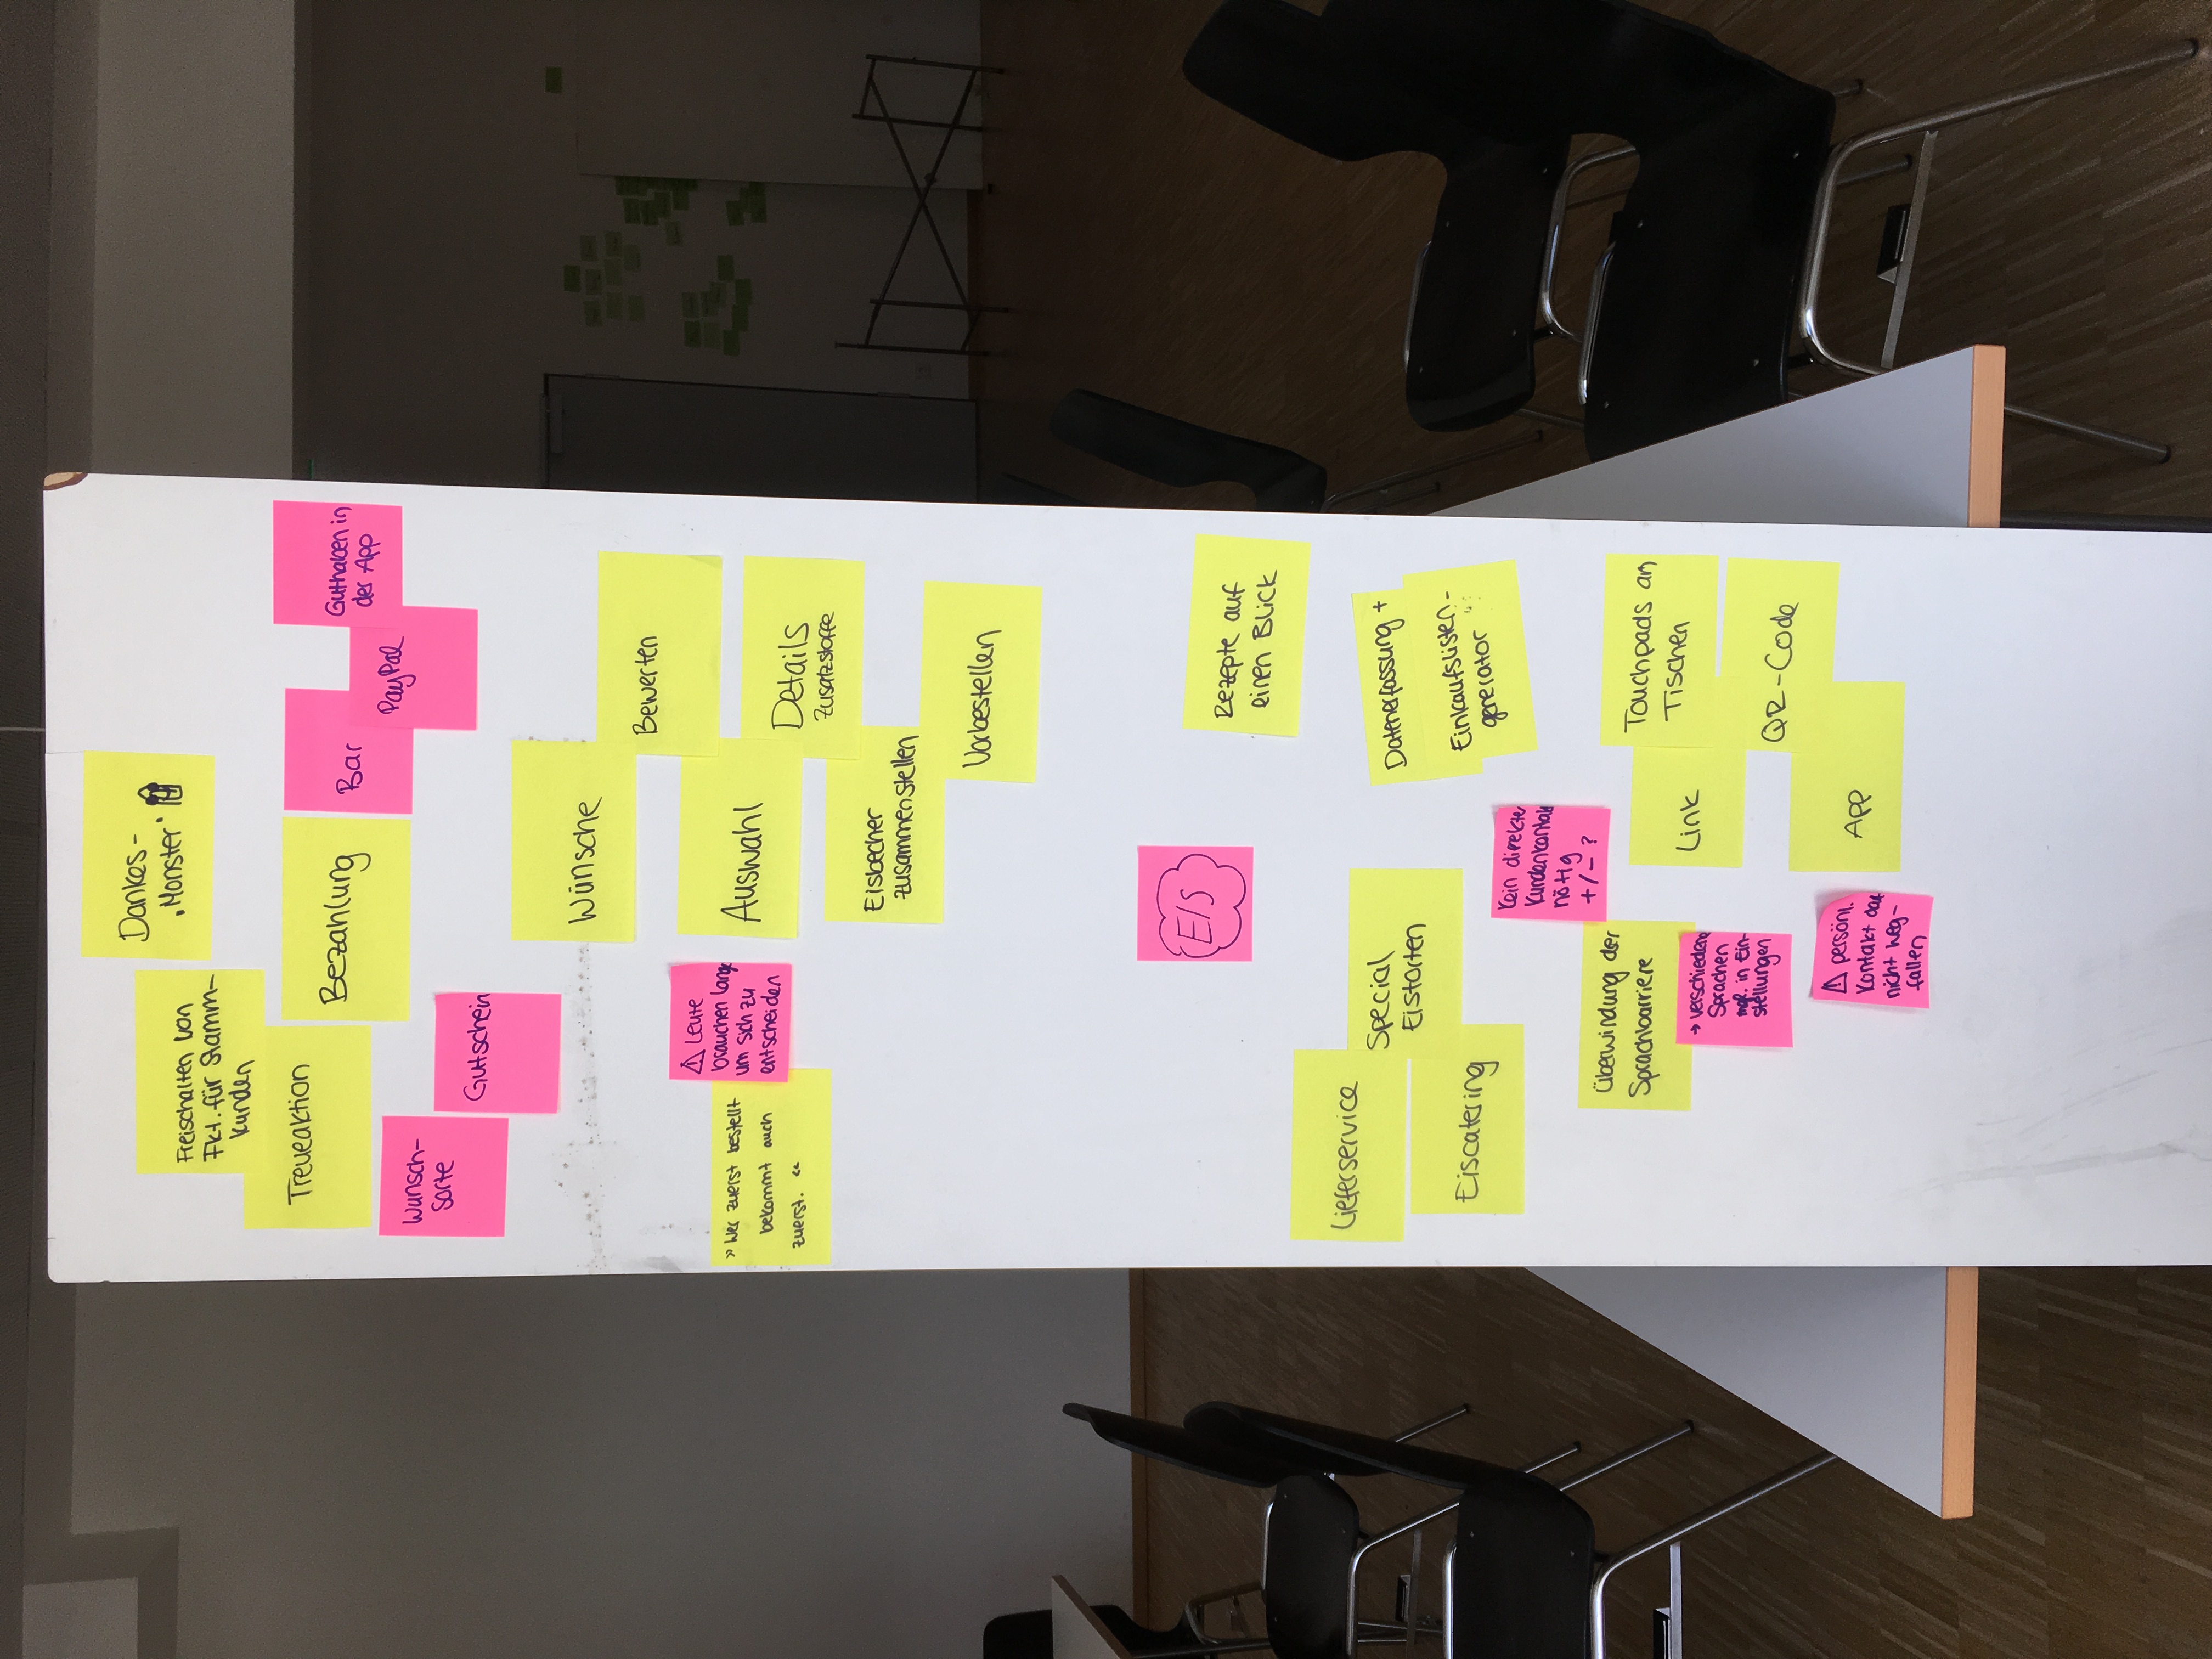 Dankes-
„Monster"
Freischalten von
Fkt. für Stamm-
kunden
Treueaktion
Bezahlung
Bar
PayPal
Guthaben in
der App
Wunsch-
sorte
Gutschein
Wünsche
Bewerten
» Wer zuerst bestellt
bekommt auch
zuerst. «
⚠ Leute
brauchen lange
um sich zu
entscheiden
Auswahl
Details
Zusatzstoffe
Eisbecher
zusammenstellen
Vorbestellen
EIS
Rezepte auf
einen Blick
Lieferservice
Special
Eistorten
Eiscatering
Datenerfassung +
Einkaufslisten-
generator
Kein direkter
Kundenkontakt
nötig
+/- ?
Überwindung der
Sprachbarriere
→ verschiedene
Sprachen
mgl. in Ein-
stellungen
Link
Touchpads an
Tischen
QR-Code
App
⚠ persönl.
Kontakt darf
nicht weg-
fallen